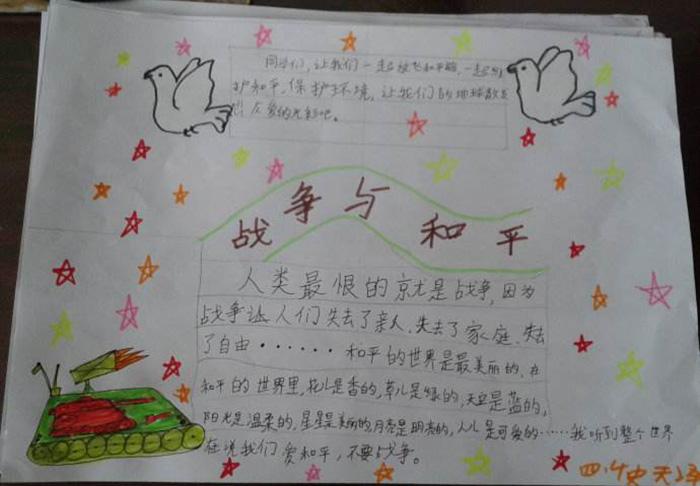 同学们，让我们一起放飞和平鸽，一起
护和平，保护环境，让我们的地球散
友爱的光彩吧。
战争与和平
人类最恨的就是战争，因为
战争让人们失去了亲人、失去了家庭、失去
了自由······和平的世界是最美丽的，在
和平的世界里，花儿是香的，草儿是绿的，天空是蓝的，
阳光是温柔的，星星是美丽的，月亮是明亮的，人儿是可爱的······我听到整个世界
在说我们爱和平，不要战争。
四.4史天